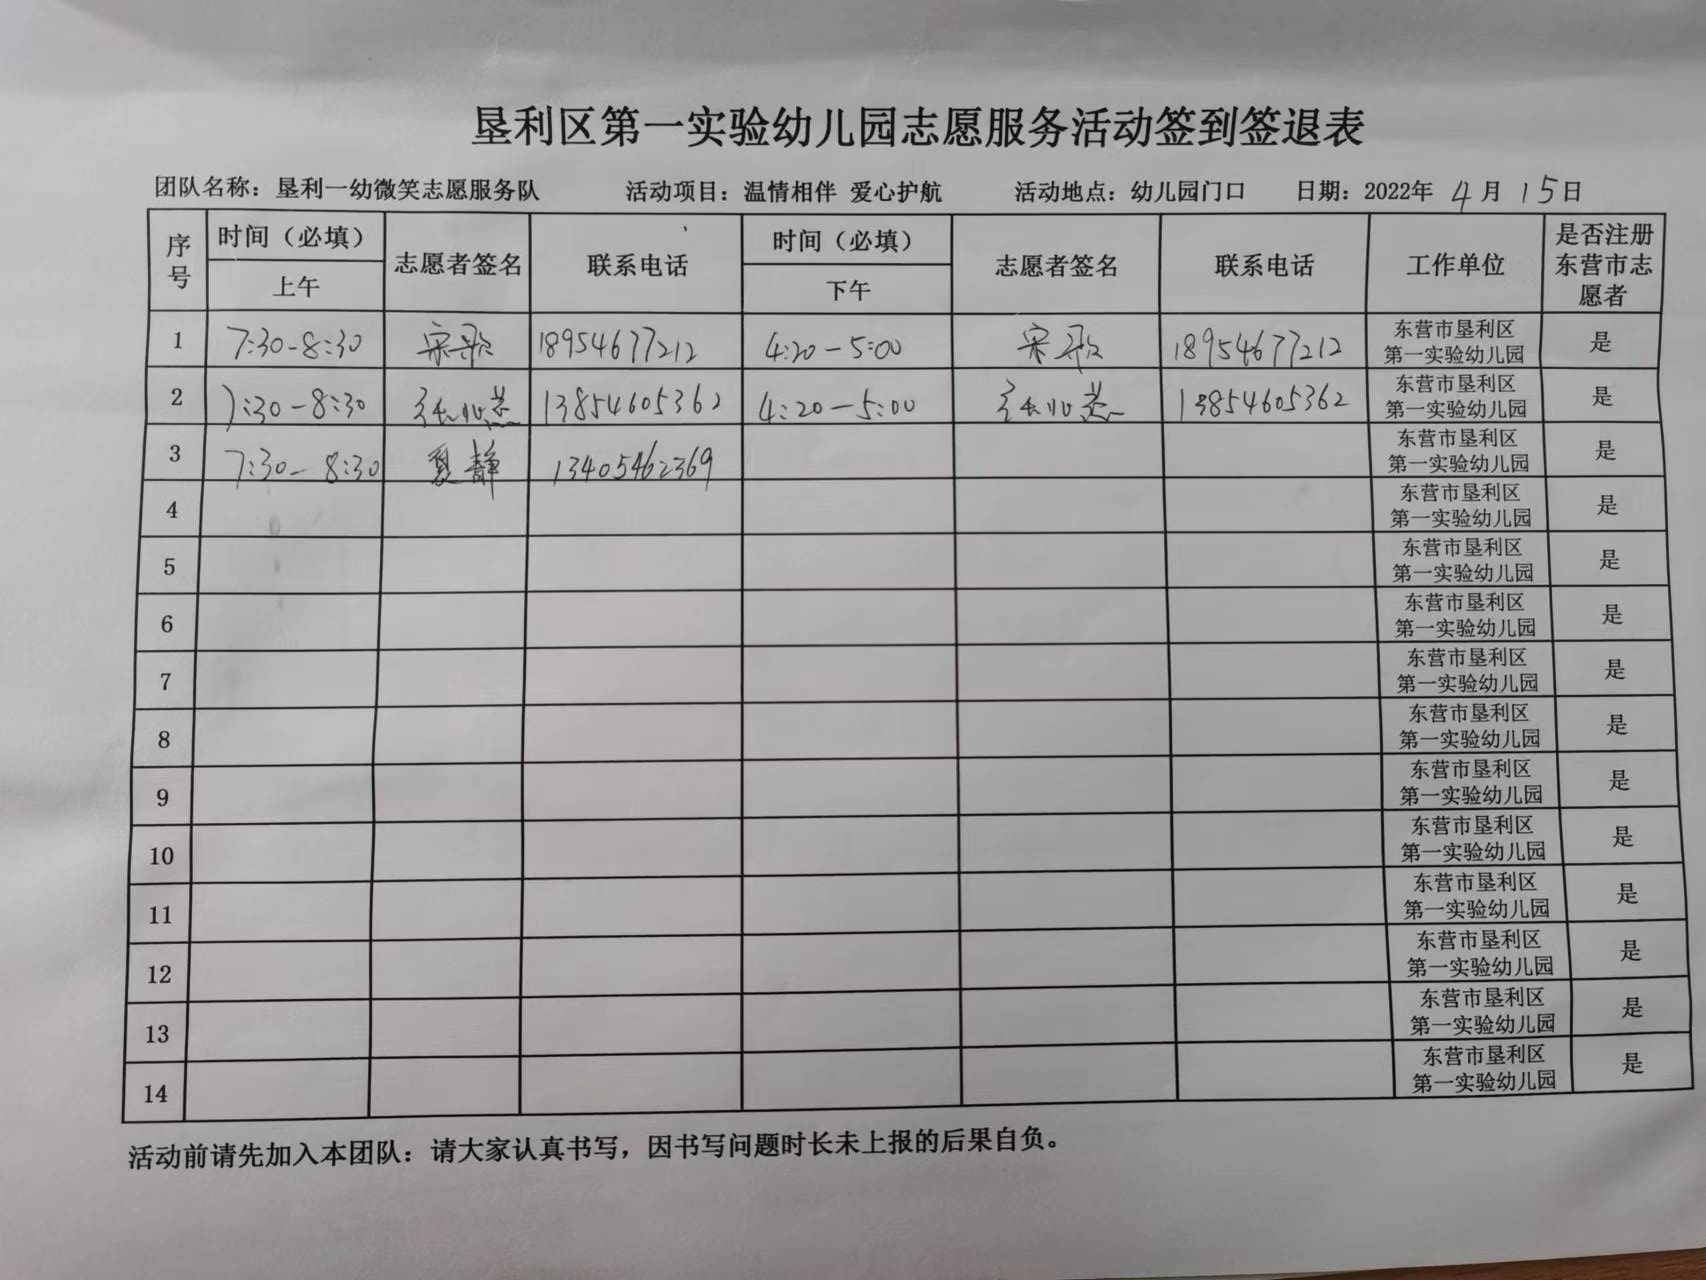 垦利区第一实验幼儿园志愿服务活动签到签退表
团队名称：垦利一幼微笑志愿服务队 活动项目：温情相伴 爱心护航 活动地点：幼儿园门口 日期：2022年 4月 15日
序号 时间（必填） 上午 志愿者签名 联系电话 时间（必填） 下午 志愿者签名 联系电话 工作单位 是否注册东营市志愿者
1 7:30-8:30 宋歌 18954677212 4:20-5:00 宋歌 18954677212 东营市垦利区第一实验幼儿园 是
2 7:30-8:30 13854605362 4:20-5:00 13854605362 东营市垦利区第一实验幼儿园 是
3 7:30-8:30 夏静 13405462369 东营市垦利区第一实验幼儿园 是
4 东营市垦利区第一实验幼儿园 是
5 东营市垦利区第一实验幼儿园 是
6 东营市垦利区第一实验幼儿园 是
7 东营市垦利区第一实验幼儿园 是
8 东营市垦利区第一实验幼儿园 是
9 东营市垦利区第一实验幼儿园 是
10 东营市垦利区第一实验幼儿园 是
11 东营市垦利区第一实验幼儿园 是
12 东营市垦利区第一实验幼儿园 是
13 东营市垦利区第一实验幼儿园 是
14 东营市垦利区第一实验幼儿园 是
活动前请先加入本团队：请大家认真书写，因书写问题时长未上报的后果自负。